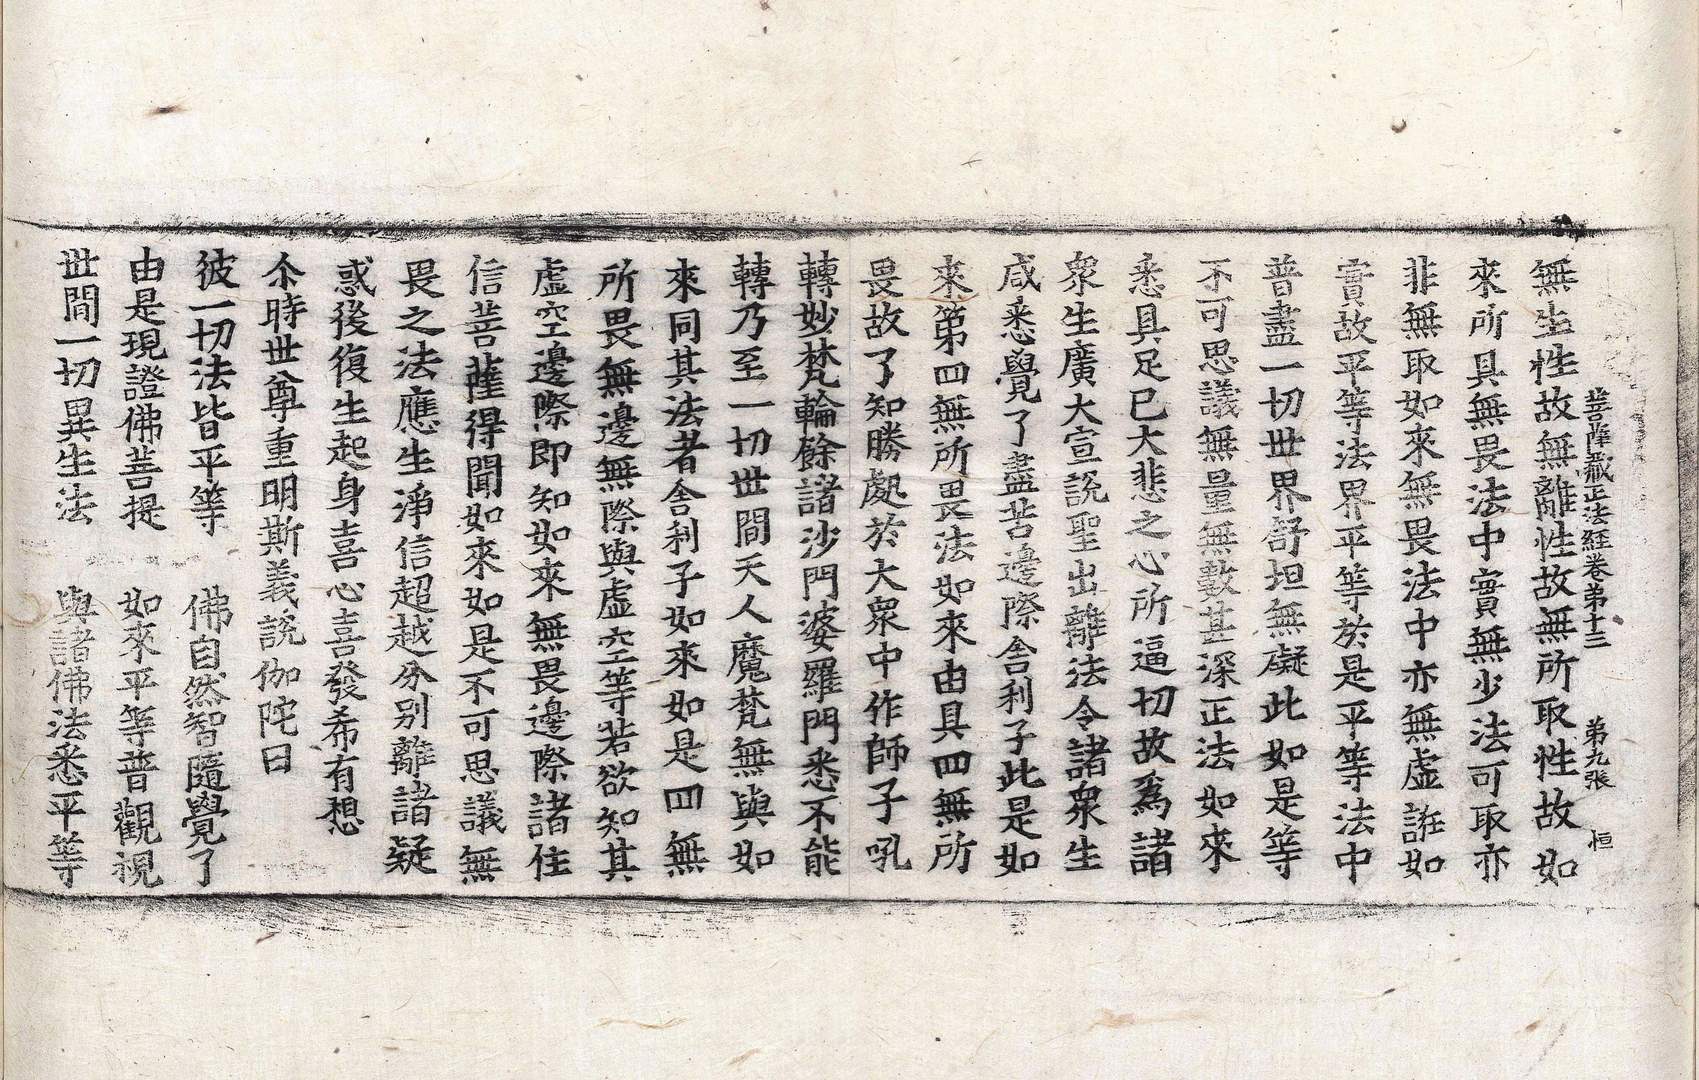 菩薩藏正法経卷弟十三 弟九张 恒
無生性故無離性故無所取性故如
來所具無畏法中實無少法可取亦
非無取如來無畏法中亦無虛誑如
實故平等法界平等於是平等法中
普盡一切世界舒坦無礙此如是等
不可思議無量無數甚深正法如來
悉具足已大悲之心所逼切故為諸
衆生廣大宣說聖出離法令諸衆生
咸悉覺了盡苦邊際舍利子此是如
來第四無所畏法如來由具四無所
畏故了知勝處於大衆中作師子吼
轉妙梵輪餘諸沙門婆羅門悉不能
轉乃至一切世間天人魔梵無與如
來同其法者舍利子如來如是四無
所畏無邊無際與虛空等若欲知其
虛空邊際即知如來無畏邊際諸住
信菩薩得聞如來如是不可思議無
畏之法應生淨信超越分别離諸疑
惑後復生起身喜心喜發希有想
尒時世尊重明斯義說伽陀曰
彼一切法皆平等 佛自然智隨覺了
由是現證佛菩提 如來平等普觀視
世間一切異生法 與諸佛法悉平等